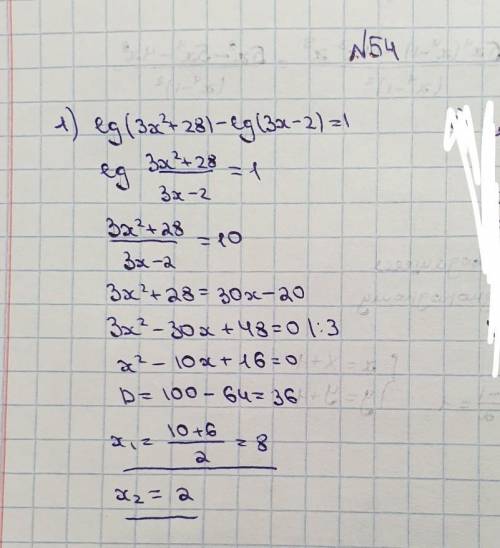 №54
1) lg(3x²+28)-lg(3x-2)=1
lg (3x²+28)/(3x-2) = 1
(3x²+28)/(3x-2) = 10
3x²+28=30x-20
3x²-30x+48=0 |:3
x²-10x+16=0
D=100-64=36
x₁= (10+6)/2 = 8
x₂= 2